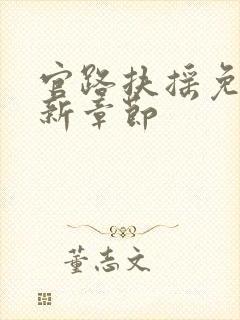 官路扶摇免
新章节
董志文